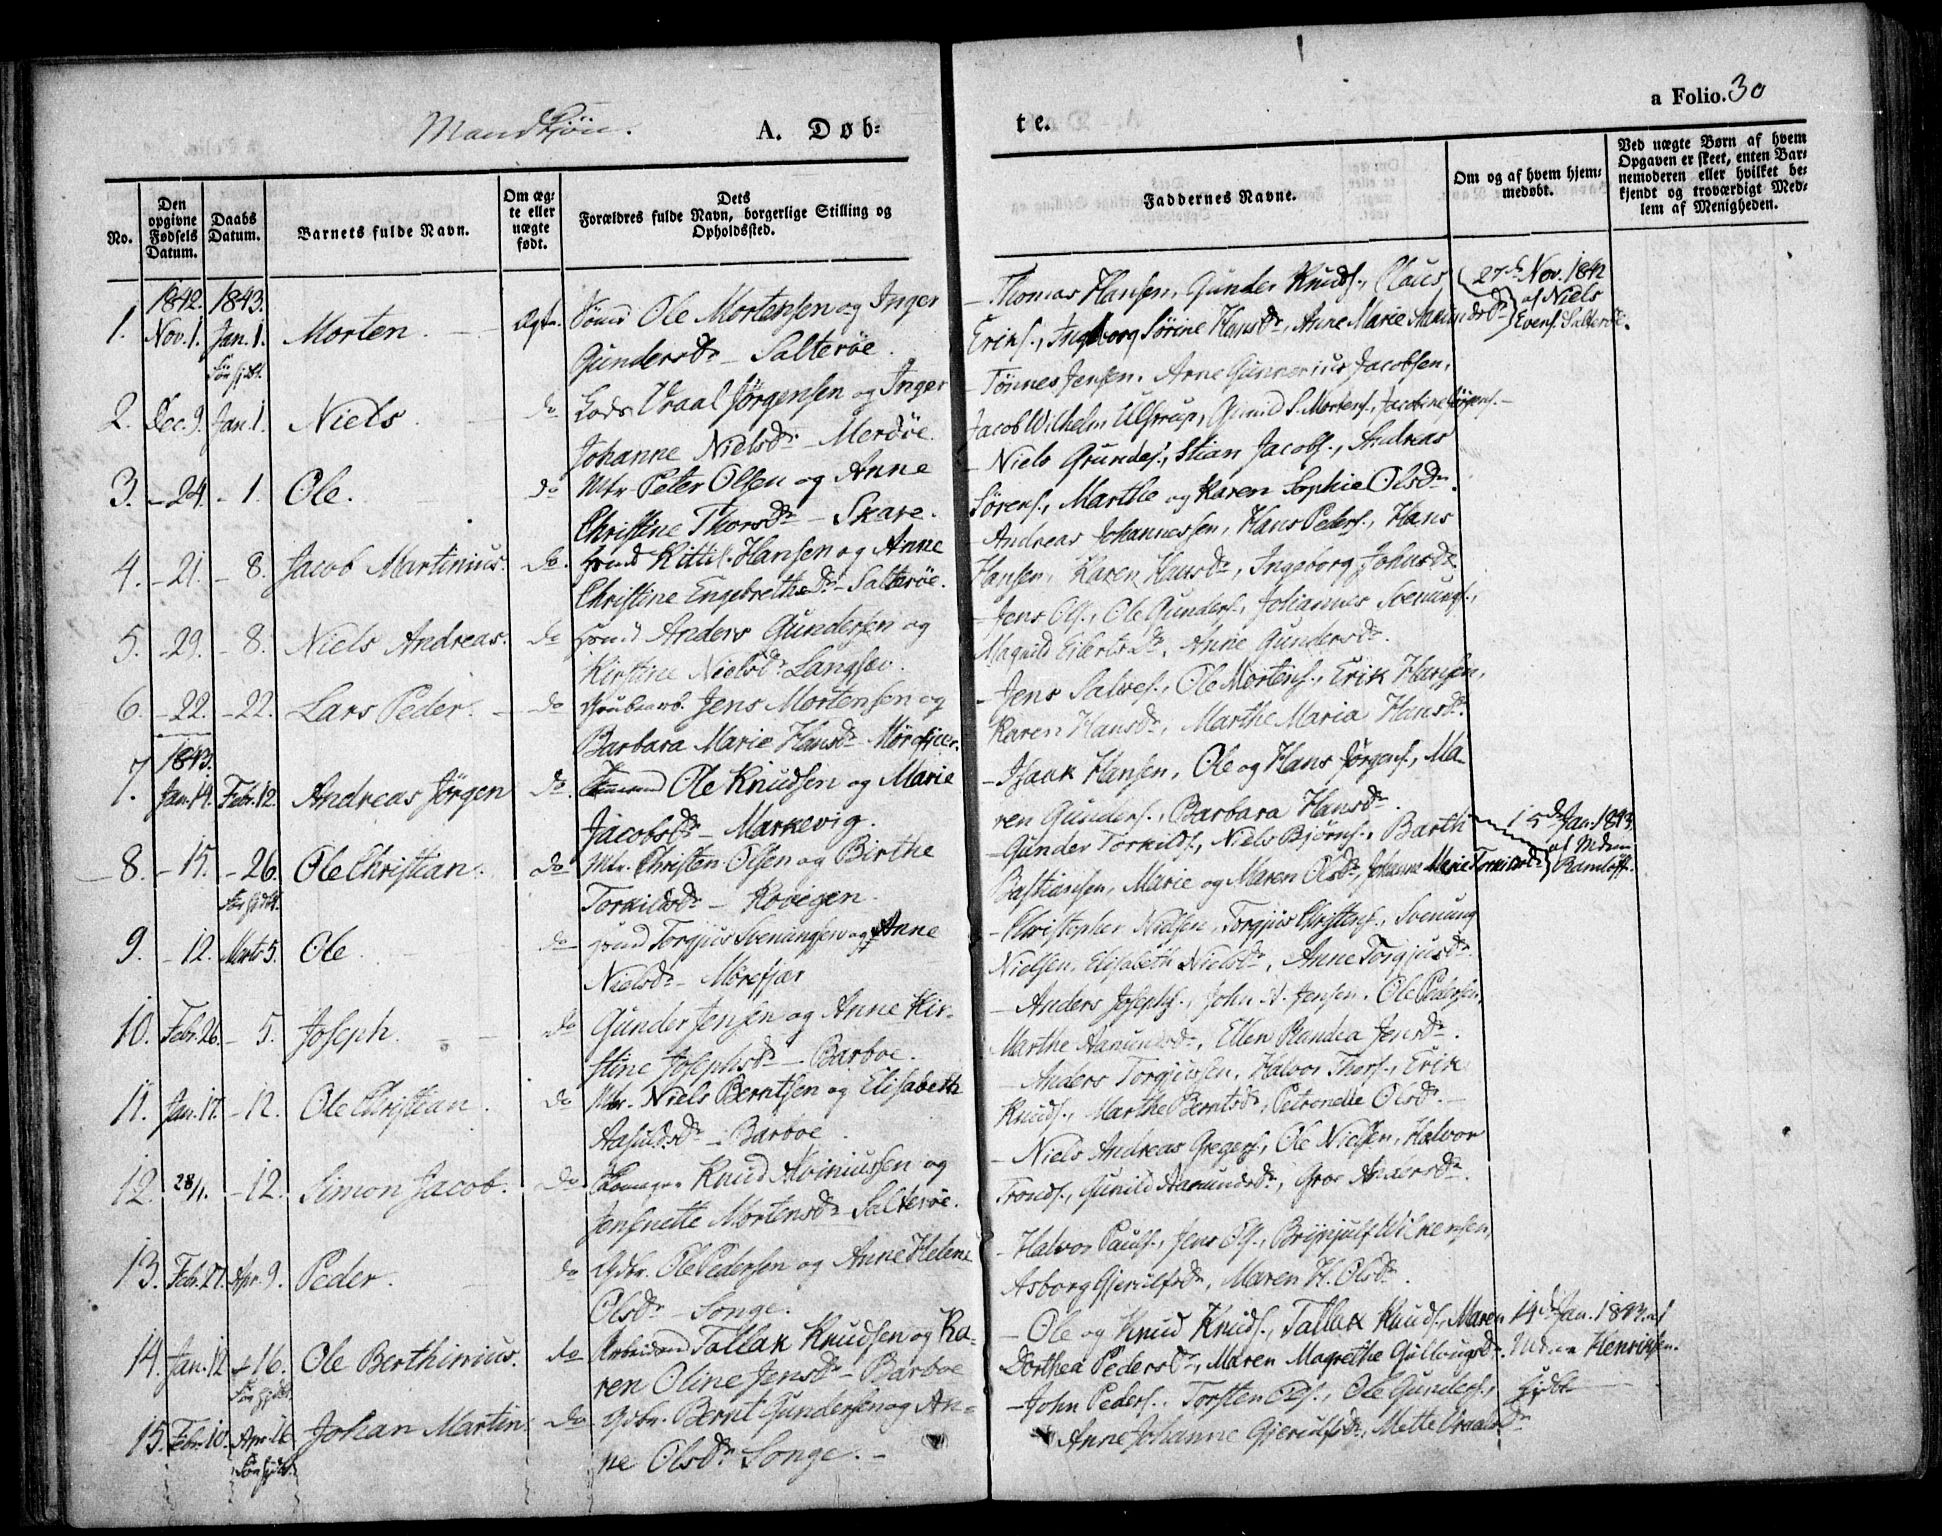 Mandkjön. A. Døb-
te. a Folio. 30
No.
Den opgivne Fødsels Datum.
Daabs Datum.
Barnets fulde Navn.
Om ægte eller uægte født.
Dets Forældres fulde Navn, borgerlige Stilling og Opholdssted.
Faddernes Navne.
Om og af hvem hjemmedøbt.
Ved uægte Børn af hvem Opgaven er skeet, enten Barnemoderen eller hvilket bekjendt og troværdigt Medlem af Menigheden.
1842. 1843.
1. Nov. 1. Jan. 1. Morten. Ægte. Ole Mortensen og Inger
Gundersdr - Salteröe.
Thomas Hansen, Gunder Knuds., Claus
Eriks., Ingeborg Sörine Hansdr, Anne Marie
27de Nov. 1842
af Niels
Evens. Salteröe.
2. Dec. 9. Jan. 1. Niels do Lods Vraal Jørgensen og Inger
Johanne Nielsdr - Merdöe.
Tönnes Jensen, Arne Gunnerius Jacobsen,
Jacob Wilhelm Ulstrup, Mortens., Jacobine
3. - 24. - 1. Ole. do Mtr Peter Olsen og Anne
Christine Thorsdr - Skare.
- Niels Grundes., Stian Jacobs., Andreas
Sörens., Marthe og Karen Sophie Olsdr.
4. - 21. - 8. Jacob Martinius. do. Kittil Hansen og Anne
Christine Engebrethsdr - Salteröe.
Andreas Johannessen, Hans Peders., Hans
Hansen, Karen Hansdr, Ingeborg Johnsdr.
5. - 29. - 8. Niels Andreas. do Anders Gundersen og
Kirstine Nielsdr Langsæv.
- Jens Ols., Ole Gunders., Johannes Svenungs.,
Magnild Eilertsdr, Anne Gundersdr.
6. - 22. - 22. Lars Peder. - do Grubearb. Jens Mortensen og
Barbara Marie Hansdr Mörefjær.
- Jens Salves., Ole Mortens., Erik Hansen,
Karen Hansdr, Marthe Maria Hansdr.
1843.
7. Jan. 14. Febr. 12. Andreas Jørgen do. Ole Knudsen og Marie
Jacobsdr - Markevig.
- Isaak Hansen, Ole og Hans Jørgens., Ma-
ren Gunders., Barbara Hansdr.
8. - 15. - 26. Ole Christian. do Mtr. Christen Olsen og Birthe
Torkildsdr - Kovigen.
- Gunder Torkilds., Niels Bjørns., Barth
Bastiansen, Marie og Maren Olsdr, Johanne Marie Torkildsdr
15de Jan. 1843
af Mdm
Ramløff.
9. - 12. Marts 5. Ole do Torgjus Svenungsen og Anne
Nielsdr - Mörefjær
- Christopher Nielsen, Torgjus Christens., Svenung
Nielsen, Elisabeth Nielsdr, Anne Torgjusdr.
10. Febr. 26. - 5. Joseph. do Gunder Jensen og Anne Kir-
stine Josephsdr - Barboe.
- Anders Josephs., John N. Jensen, Ole Pedersen,
Marthe Aanundsdr, Ellen Randea Jensdr.
11. Jan. 17. - 12. Ole Christian. do Mtr. Niels Berntsen og Elisabeth
Aasuldsdr - Barboe.
- Anders Torgjussen, Halvor Thors., Erik
Knuds., Marthe Berntsdr, Petronelle Olsdr. -
12. 28/1. - 12. Simon Jacob. do Knud Aviniussen og
Jensenette Mortensdr Salteröe.
- Niels Andreas Gregers., Ole Nielsen, Halvor
Tronds., Gunild Aanundsdr, Groe Andersdr.
13. Febr. 27. Apr. 9. Peder. do Gdbr. Ole Pedersen og Anne Helene
Olsdr - Songe.
- Halvor Pauls., Jens Ols., Brynjulf Wilkensen,
Asborg Gjerulfsdr, Maren H. Olsdr.
14. Jan. 12. - 16. Ole Berthinius. do Arbeidsmd Tallak Knudsen og Ka-
ren Oline Jensdr - Barboe
- Ole og Knud Knuds., Tallak Knuds., Maren
Dorthea Pedersdr, Maren Magrethe Gullougsdr.
14de Jan. 1843 af
Mdm Henriksen.
15. Febr. 10. Apr. 16. Johan Martin. do Gdbr. Bernt Gundersen og An-
ne Olsdr Songe. -
- John Peders., Torsten Ols., Ole Gunders.,
Anne Johanne Gjerulfsdr, Mette Vraalsdr